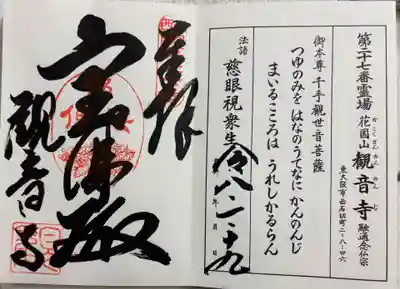 第二十七番霊場 花国山 観音寺 融通念仏宗
かこくさん かんのんじ
東大阪市西石切町二-八-四六
御本尊 千手観世音菩薩
つゆのみを はなのうてなに かんのんじ
まいるこころは うれしかるらん
法語 慈眼視衆生
令八 二・十九
年 月 日
奉拝
観音寺